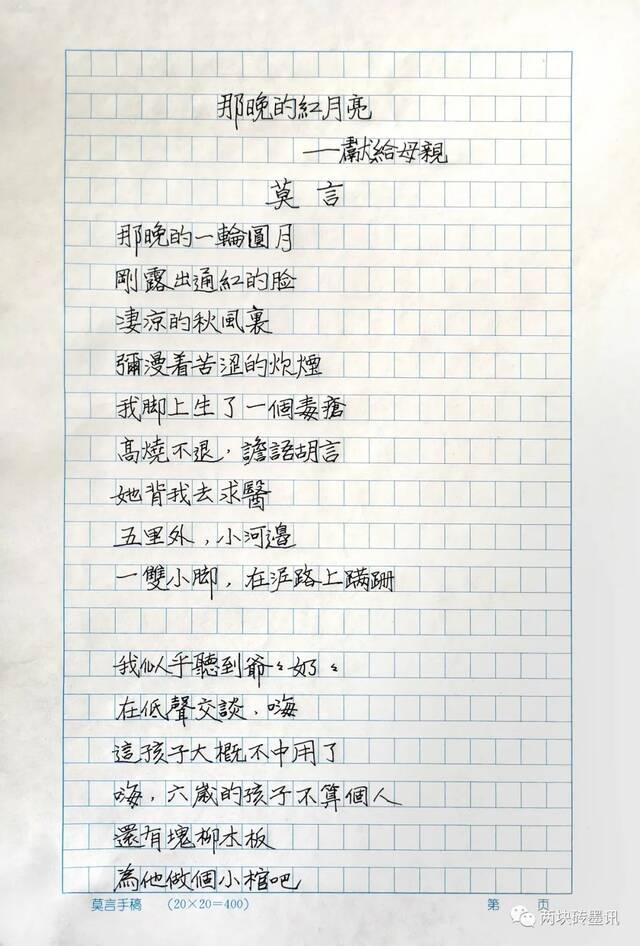 那晚的紅月亮
——獻給母親
莫言
那晚的一輪圓月
剛露出通紅的脸
淒涼的秋風裏
彌漫着苦涩的炊煙
我脚上生了一個毒瘡
高燒不退，譫語胡言
她背我去求醫
五里外，小河邊
一雙小脚，在泥路上蹒跚
我似乎聽到爺々奶々
在低聲交談，嗨
這孩子大概不中用了
嗨，六歲的孩子不算個人
還有塊柳木板
為他做個小棺吧
莫言手稿 （20×20=400） 第 页
两块砖墨讯